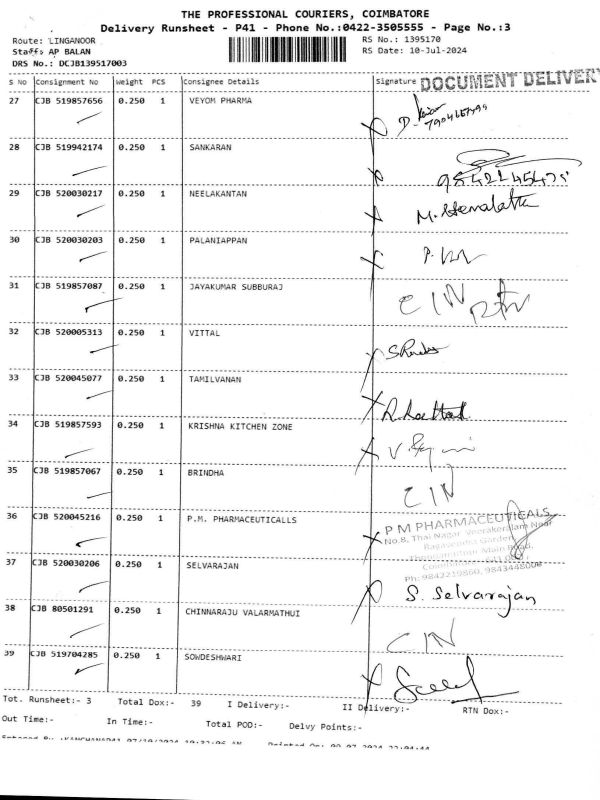 THE PROFESSIONAL COURIERS, COIMBATORE
Delivery Runsheet - P41 - Phone No.:0422-3505555 - Page No.:3
Route: LINGANOOR RS No.: 1395170
Staff: AP BALAN RS Date: 10-Jul-2024
DRS No.: DCJB139517003
S No Consignment No Weight PCS Consignee Details Signature DOCUMENT DELIVERY
27 CJB 519857656 0.250 1 VEYOM PHARMA
28 CJB 519942174 0.250 1 SANKARAN
29 CJB 520030217 0.250 1 NEELAKANTAN M. Hemalatha
30 CJB 520030203 0.250 1 PALANIAPPAN
31 CJB 519857087 0.250 1 JAYAKUMAR SUBBURAJ CIN
32 CJB 520005313 0.250 1 VITTAL
33 CJB 520045077 0.250 1 TAMILVANAN
34 CJB 519857593 0.250 1 KRISHNA KITCHEN ZONE
35 CJB 519857067 0.250 1 BRINDHA CIN
36 CJB 520045216 0.250 1 P.M. PHARMACEUTICALLS
P M PHARMACEUTICALS
No.8, Thai Nagar, Veerakeralam Near
Main Road,
Ph: 9842219860, 984344800
37 CJB 520030206 0.250 1 SELVARAJAN S. Selvarajan
38 CJB 80501291 0.250 1 CHINNARAJU VALARMATHUI CIN
39 CJB 519704285 0.250 1 SOWDESHWARI
Tot. Runsheet:- 3 Total Dox:- 39 I Delivery:- II Delivery:- RTN Dox:-
Out Time:- In Time:- Total POD:- Delvy Points:-